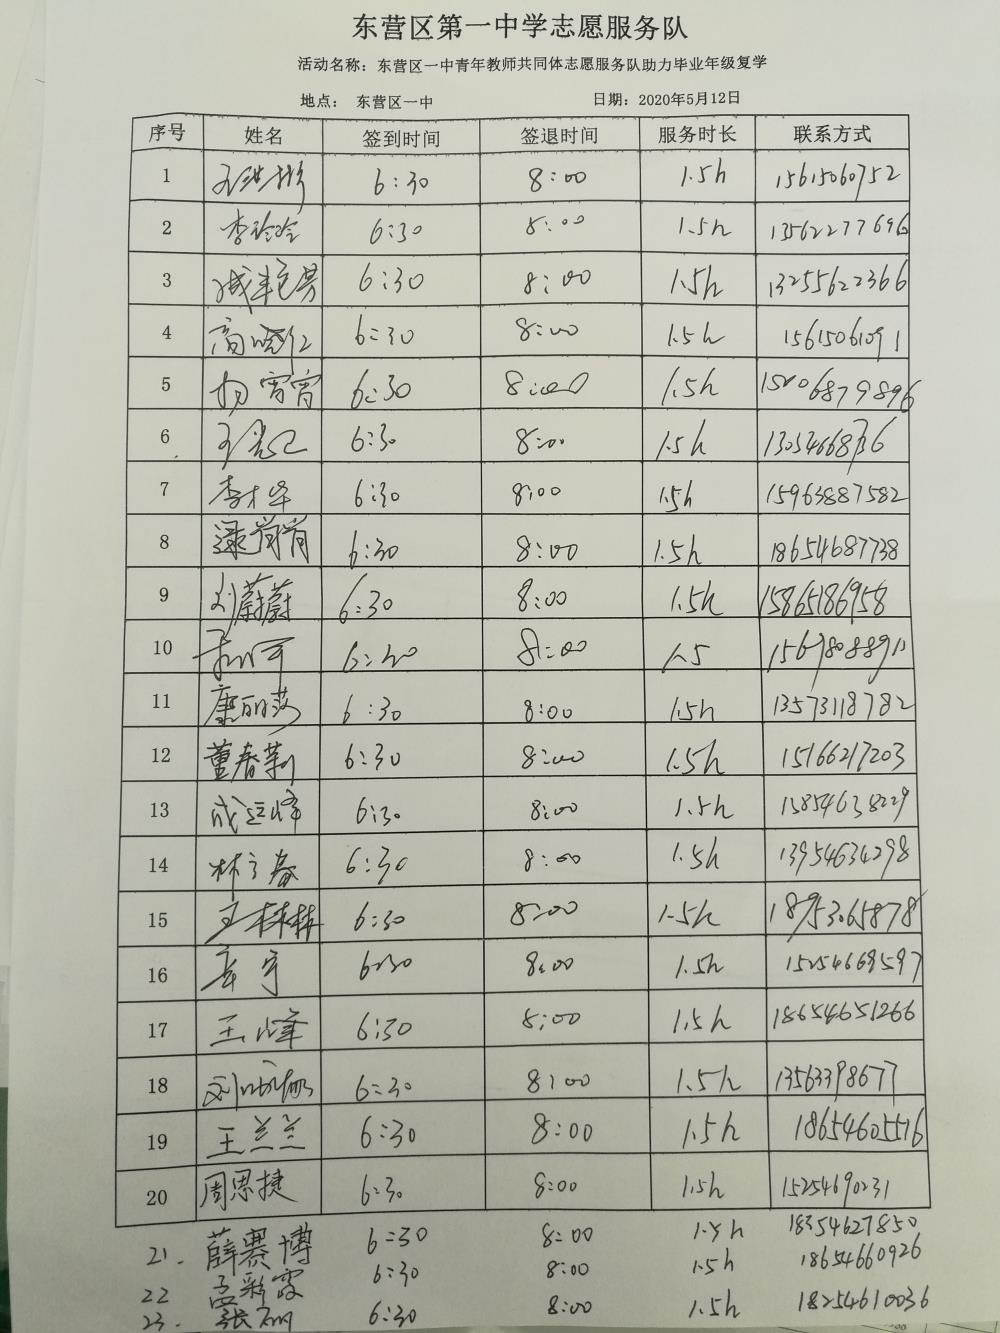 东营区第一中学志愿服务队
活动名称：东营区一中青年教师共同体志愿服务队助力毕业年级复学
地点： 东营区一中 日期：2020年5月12日
序号 姓名 签到时间 签退时间 服务时长 联系方式
1 6:30 8:00 1.5h 15615060752
2 李玲玲 6:30 8:00 1.5h 13562277696
3 6:30 8:00 1.5h 13255622366
4 高晓红 6:30 8:00 1.5h 15615061091
5 杨宵宵 6:30 8:00 1.5h 15006879896
6 6:30 8:00 1.5h
7 李才华 6:30 8:00 1.5h 15963887582
8 逯肖肖 6:30 8:00 1.5h 18654687738
9 刘蔚蔚 6:30 8:00 1.5h 15865186958
10 6:30 8:00 1.5 15698088911
11 康丽莎 6:30 8:00 1.5h 13573118782
12 董春莉 6:30 8:00 1.5h 15166217203
13 成廷峰 6:30 8:00 1.5h 15854638229
14 林立春 6:30 8:00 1.5h 13954634298
15 王林林 6:30 8:00 1.5h 18953065878
16 6:30 8:00 1.5h 15254668597
17 王峰 6:30 8:00 1.5h 18654651266
18 6:30 8:00 1.5h 13563398677
19 王兰兰 6:30 8:00 1.5h 18654605516
20 周思捷 6:30 8:00 1.5h 15254690231
21. 薛赛博 6:30 8:00 1.5h 18354627850
22 孟彩霞 6:30 8:00 1.5h 18654660926
23. 张丽 6:30 8:00 1.5h 18254610036